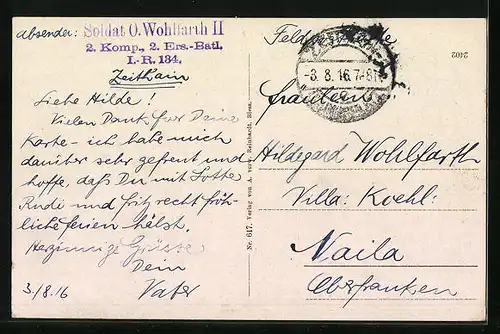 Absender: Soldat O. Wohlfarth II
2. Komp., 2. Ers.-Batl.
I.-R. 134.
Zeithain
Liebe Hilde!
Vielen Dank für Deine
Karte - ich habe mich
darüber sehr gefreut und
hoffe, daß Du mit Lotte
Rudi und Fritz recht fröh-
liche Ferien hälst.
Herzinnige Grüsse
Dein
3./8.16 Vater
Nr. 617. Verlag von Reinhardt, Riesa.
2402
-3. 8. 16. 7-8
Fräulein
Hildegard Wohlfarth
Villa: Koehl:
Naila
Oberfranken